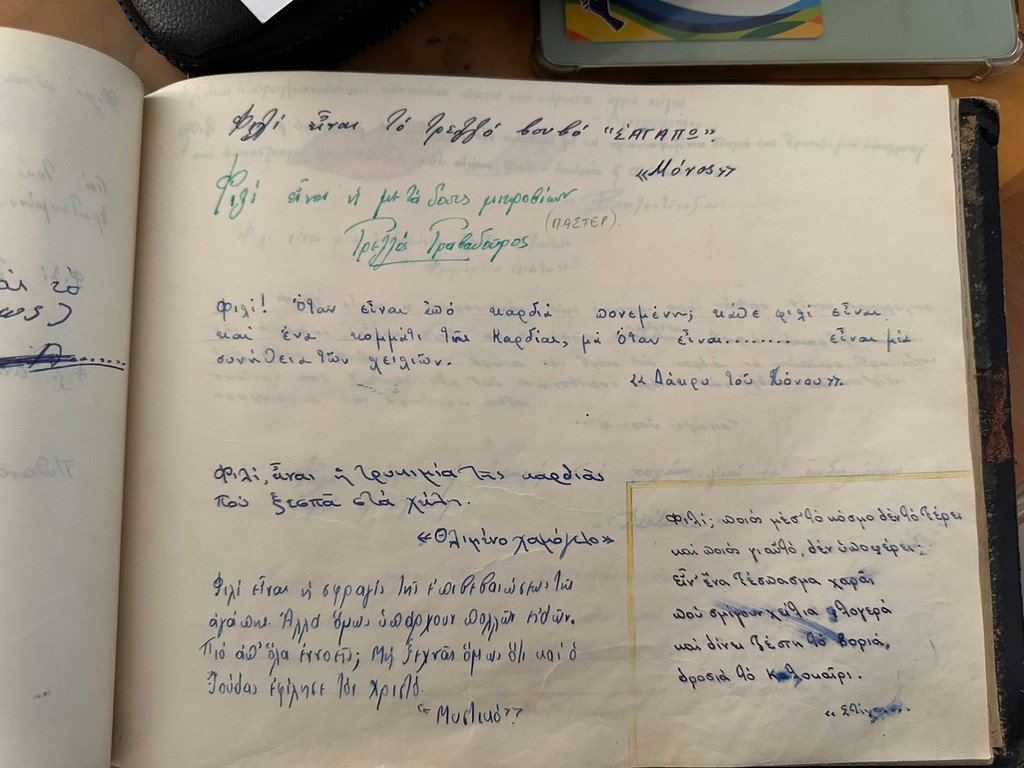 Φιλί εἶναι τό τρελλό βουβό "Σ' ΑΓΑΠΩ".
«Μόνος»
Φιλί εἶναι ἡ μετάδοσις μικροβίων
(ΠΑΣΤΕΡ).
Τρελλός Τραβαδοῦρος
Φιλί! Ὅταν εἶναι ἀπό καρδιά πονεμένη; κάθε φιλί εἶναι
καί ἕνα κομμάτι τῆς Καρδιᾶς, μά ὅταν εἶναι........ εἶναι μία
συνήθεια τῶν χειλιῶν.
«Δάκρυ τοῦ Πόνου».
Φιλί, εἶναι ἡ τρικιμία τῆς καρδιᾶς
ποῦ ξεσπᾶ στά χείλη.
«Θλιμένο χαμόγελο»
Φιλί εἶναι ἡ σφραγίς τῆς ἐπιβεβαιώσεως τῆς
ἀγάπης. Ἀλλά ὅμως ὑπάρχουν πολλῶν εἰδῶν.
Πιό ἀπ' ὅλα ἐννοεῖς; Μή ξεχνᾶς ὅμως ὅτι καί ὁ
Ἰούδας ἐφίλησε τόν Χριστό.
"Μυστικό"
Φιλί; ποιός μέσ' τό κόσμο δέν τό ξέρει
καί ποιός γι αὐτό, δέν ὑποφέρει;
εἶν' ἕνα ξέσπασμα χαρᾶς
πού σμίγουν χείλια φλογερά
καί δίνει ζέστη τό βοριά,
δροσιά τό καλοκαῖρι.